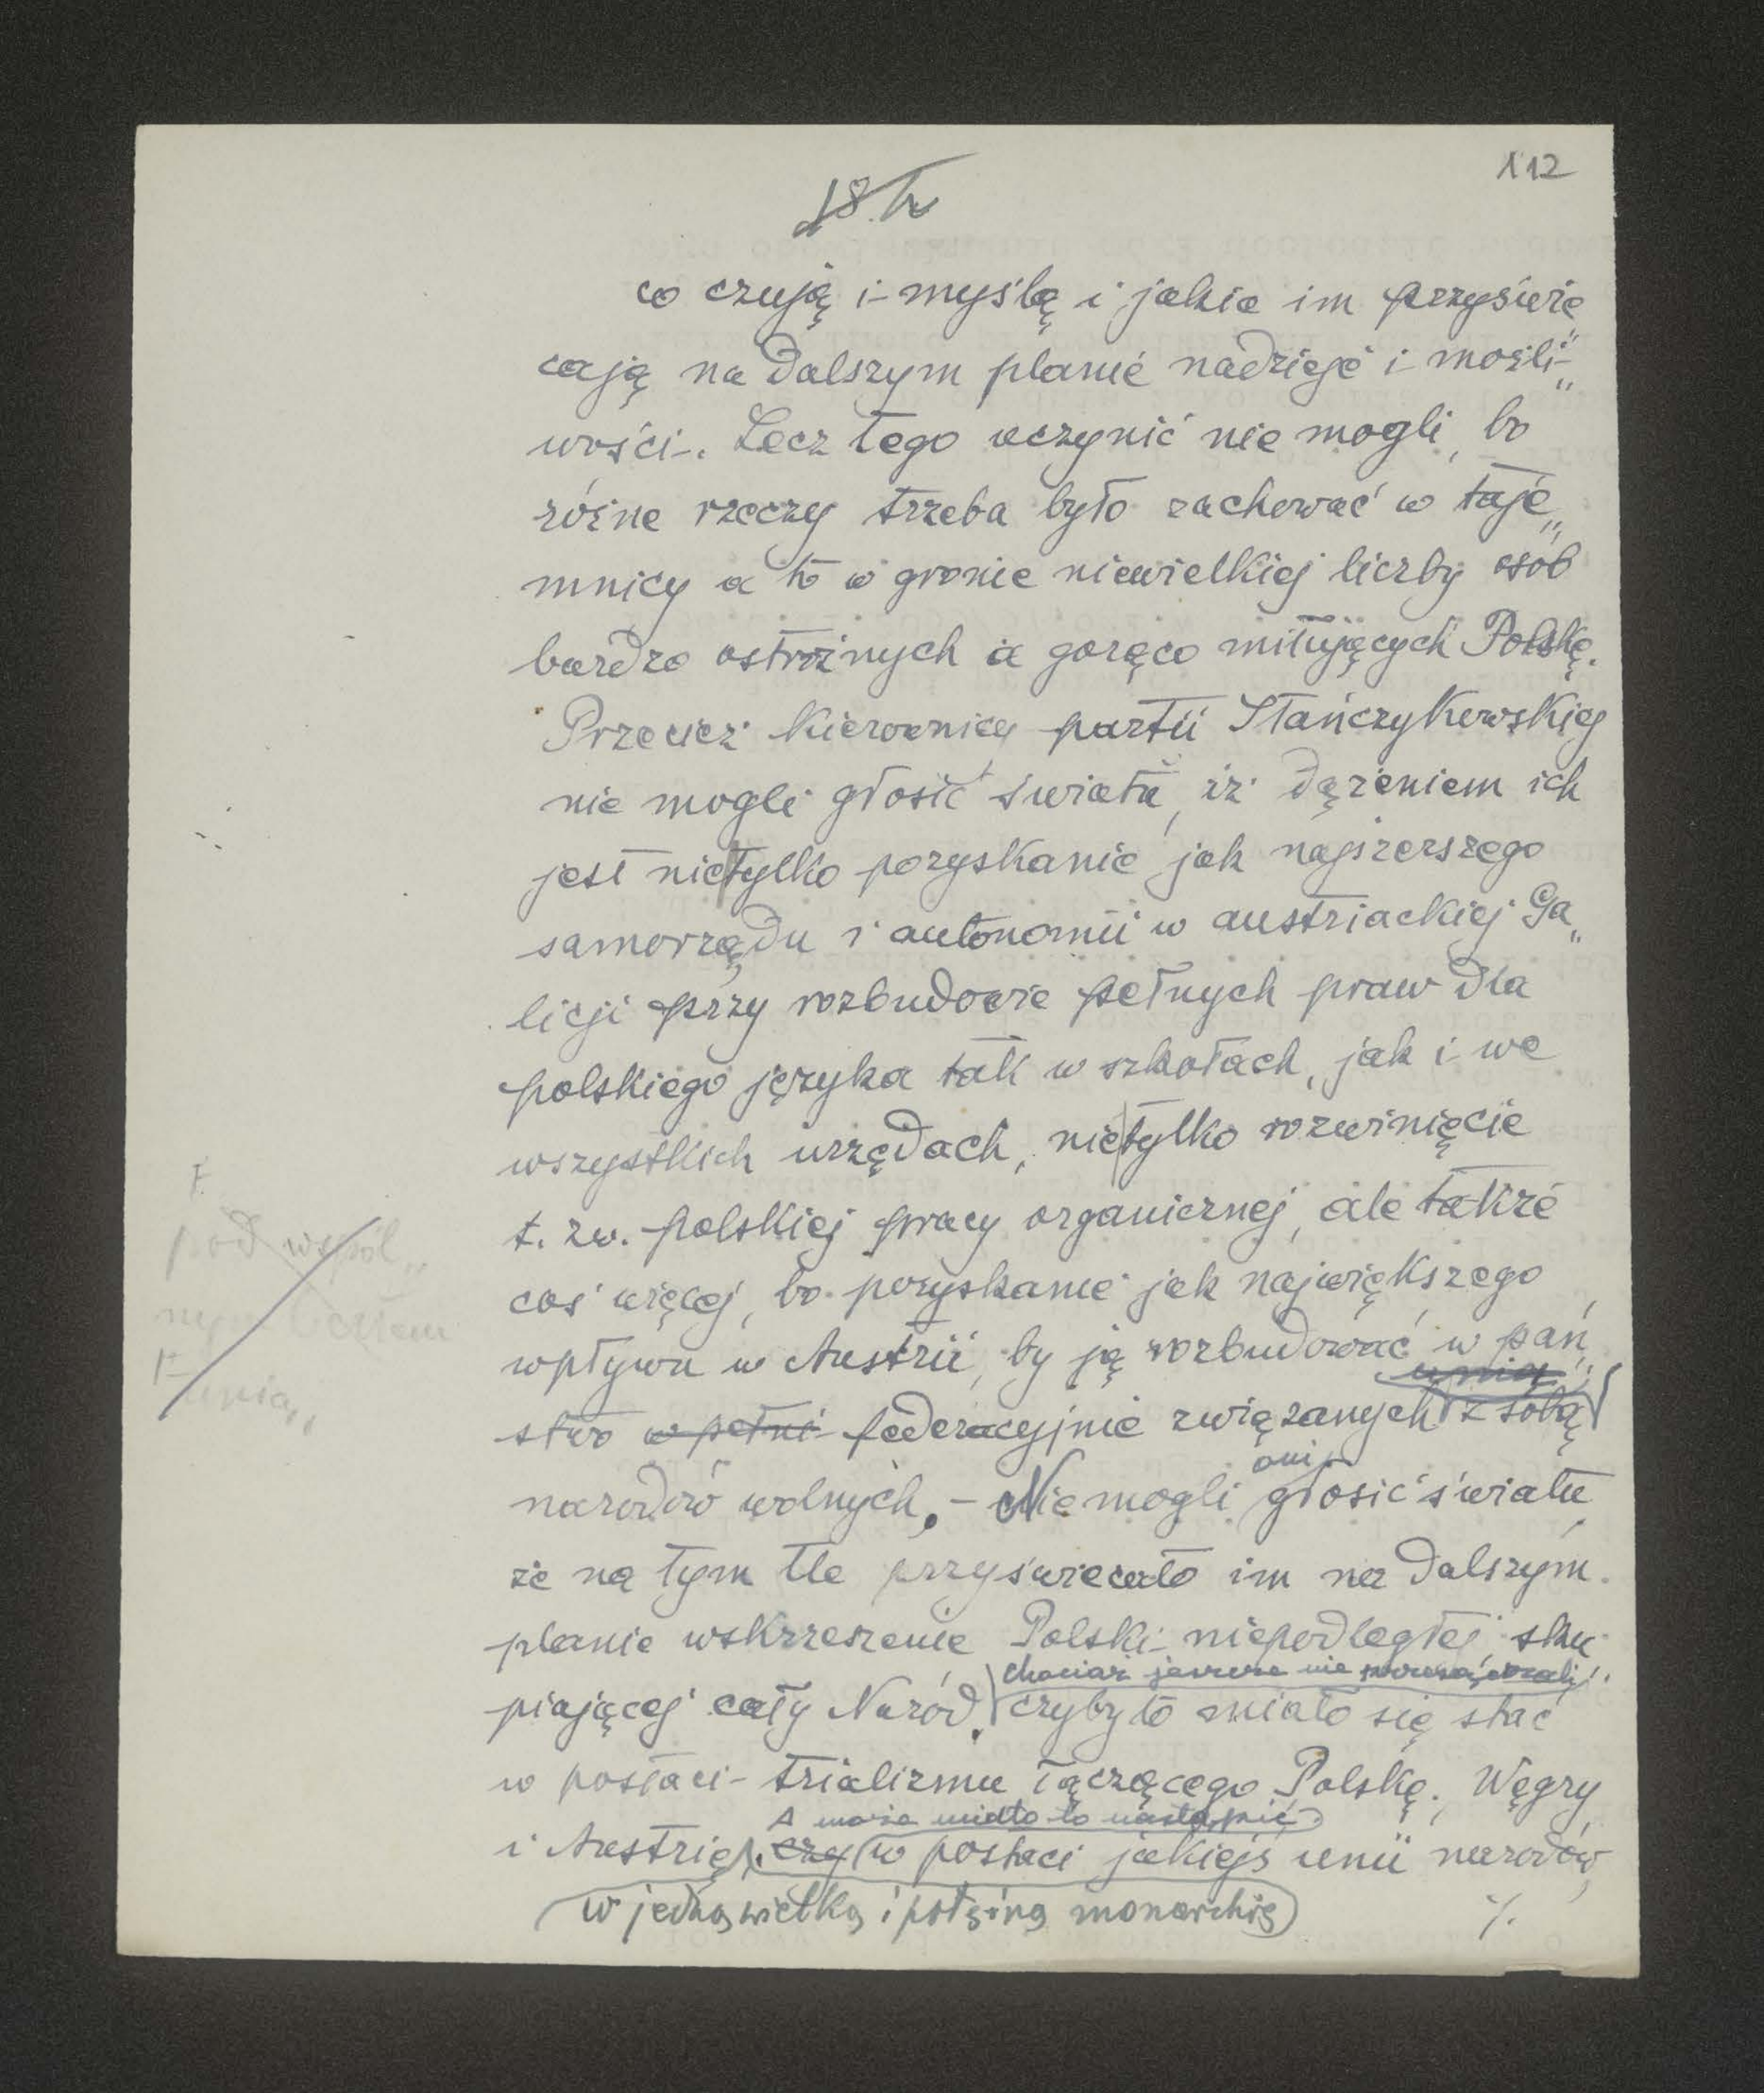 112
18.h
co czują i myślą i jakie im przyświe
cają na dalszym planie nadzieje i możli„
wości. Lecz tego uczynić nie mogli, bo
różne rzeczy trzeba było zachować w taje„
mnicy a to w gronie niewielkiej liczby osób
bardzo ostrożnych a gorąco miłujących Polskę.
Przecież kierownicy partii Stańczykowskiej
nie mogli głosić światu, iż dążeniem ich
jest nie|tylko pozyskanie jak najszerszego
samorządu i autonomii w austriackiej Ga„
licji przy rozbudowie pełnych praw dla
polskiego języka tak w szkołach, jak i we
wszystkich urzędach, nie|tylko rozwinięcie
t. zw. polskiej pracy organicznej, ale także
coś więcej, bo pozyskanie jak największego
wpływu w Austrii, by ją rozbudować w pań„
unią
stwo w pełni federacyjnie związanych z sobą
narodów wolnych. – Nie mogli oni głosić światu,
że na tym tle przyświecało im na dalszym
planie wskrzeszenie Polski niepodległej sku
chociaż jeszcze nie
piającej cały Naród. czyby to miało się stać
w postaci trializmu łączącego Polskę, Węgry
A może miało to nastąpić
i Austrię. czy w postaci jakiejś unii narodów,
w jedną wielką i potężną monarchię
/.
F.
pod wspól„
nym berłem
F
unią„